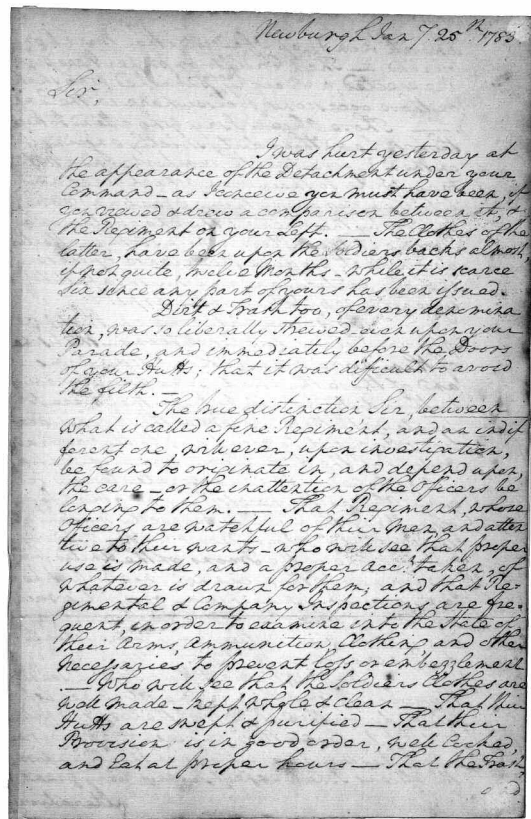 Newburgh Jany. 25th. 1783
Sir,
I was hurt yesterday at
the appearance of the Detachment under your
Command – as I conceive you must have been, if
you viewed & drew a comparison between it, &
the Regiment on your Left. — The Clothes of the
latter, have been upon the Soldiers backs almost,
if not quite, twelve Months – while it is scarce
six since any part of yours has been issued.
Dirt & Trash too, of every denomina
tion, was so liberally strewed even upon your
Parade, and immediately before the Doors
of your Hutts; that it was difficult to avoid
the filth. —
The true distinction Sir, between
what is called a fine Regiment, and an indif
ferent one, will ever, upon investigation,
be found to originate in, and depend upon,
the care – or the inattention of the Officers be
longing to them. — That Regiment, whose
Officers are watchful of their Men, and atten
tive to their wants – who will see that proper
use is made, and a proper Acct. taken, of
whatever is drawn for them, and that Re-
gimental & Company Inspections are fre-
quent, in order to examine into the State of
their Arms, Ammunition, Clothing, and other
necessaries to prevent loss or embezzlement
— Who will see that the Soldiers Clothes are
well made – kept whole & clean — That their
Hutts are swept & purified – That their
Provision is in good order, well Cooked,
and Eat at proper hours — That the Trash,
and